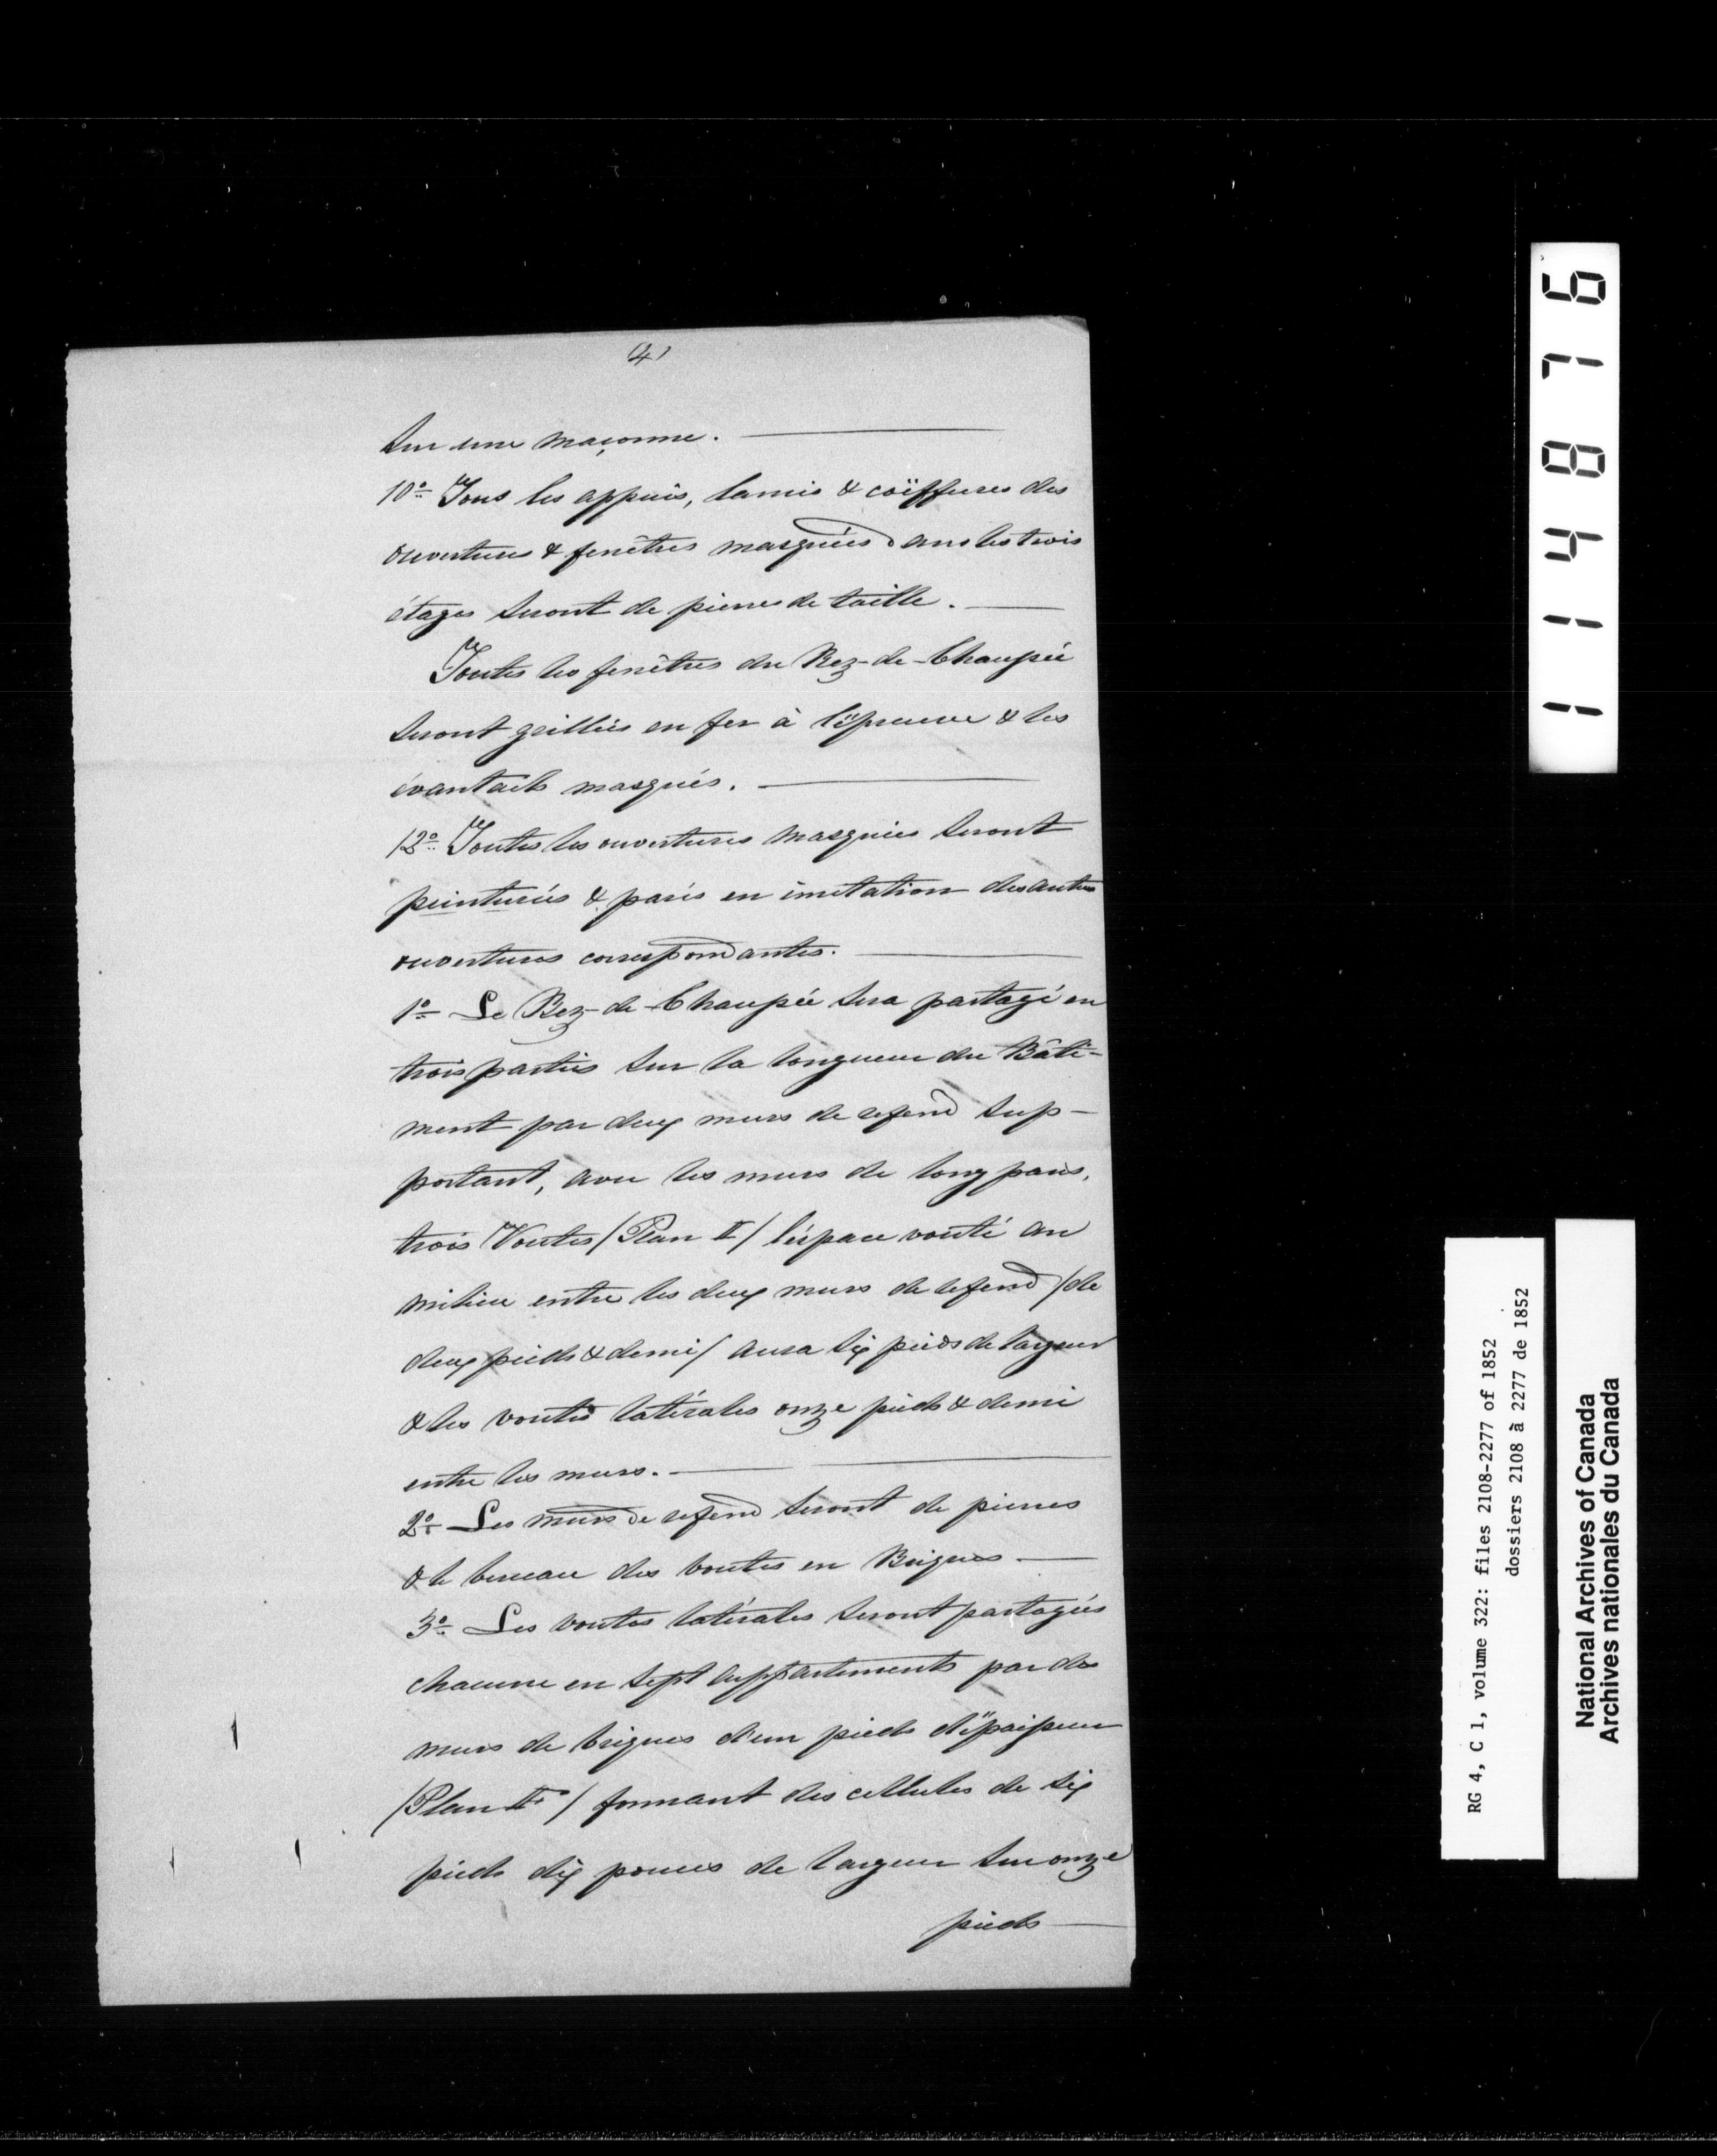 4)
sur une maçonne.
10° Tous les appuis, lamis & coïffures des
ouvertures & fenêtres masquées dans les trois
étages seront de pierres de taille.
Toutes les fenêtres du Rez-de-Chaussée
seront grillées en fer à l'épreuve & les
évantails masqués.
12° Toutes les ouvertures masquées seront
peinturées & parés en imitation des autres
ouvertures correspondantes.
1° Le Rez-de-Chaussée sera partagé en
trois parties sur la longueur du Bâti-
ment par deux murs de refend sup-
portant, avec les murs de long pans,
trois Voutes / Plan II / l'éspace vouté au
milieu entre les deux murs de refend / de
deux pieds & demi / aura six pieds de largeur
& les voutes latérales onze pieds & demi
entre les murs.
2° Les murs de refend seront de pierres
& le berceau des voutes en Briques
3° Les voutes latérales seront partagées
chacune en sept appartements par des
murs de briques d'un pieds d'épaisseur
/ Plan II / formant des cellules de six
pieds dix pouces de largeur sur onze
pieds
114876
RG 4, C 1, volume 322: files 2108-2277 of 1852
dossiers 2108 à 2277 de 1852
National Archives of Canada
Archives nationales du Canada